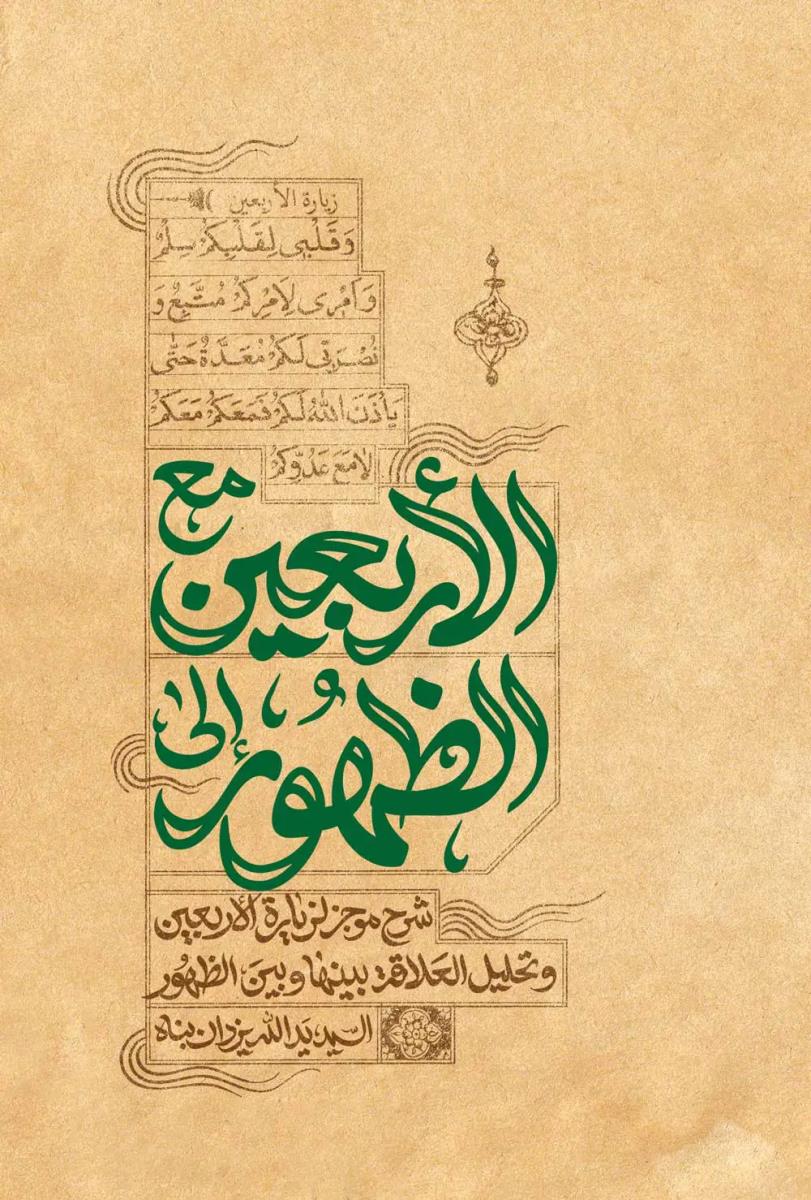 زيارة الأربعين
وَقَلْبِي لِقَلْبِكُمْ سِلْمٌ
وَاَمْرِی لِاَمْرِكُمْ مُتَّبِعٌ وَ
نُصْرَتِی لَكُمْ مُعَدَّةٌ حَتّٰی
يَأْذَنَ اللّٰهُ لَكُمْ فَمَعَكُمْ مَعَكُمْ
لا مَعَ عَدُوِّكُمْ
مع
الأربعين
إلى
الظهُور
شرح موجز لزيارة الأربعين
وتحليل العَلاقة بينها وبينَ الظهُور
السيّد يَد الله يزدان بناه